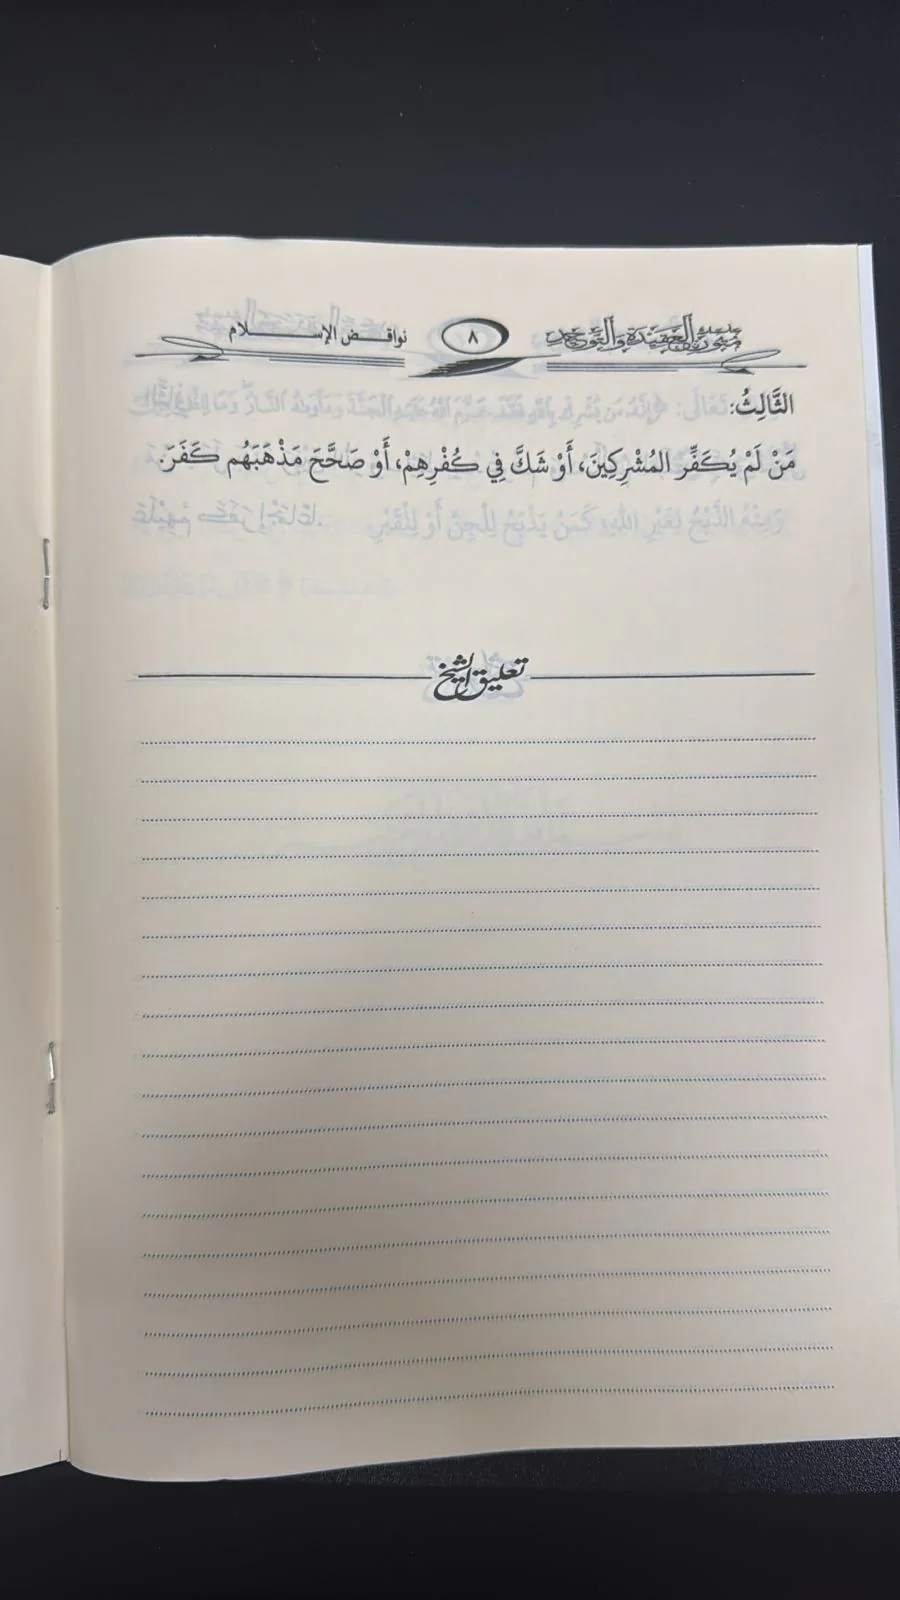 متون العقيدة والتوحيد ٨ نواقض الإسلام
الثَّالِثُ:
مَنْ لَمْ يُكَفِّرِ المُشْرِكِينَ، أَوْ شَكَّ فِي كُفْرِهِمْ، أَوْ صَحَّحَ مَذْهَبَهُم كَفَرَ.
تعليق الشيخ